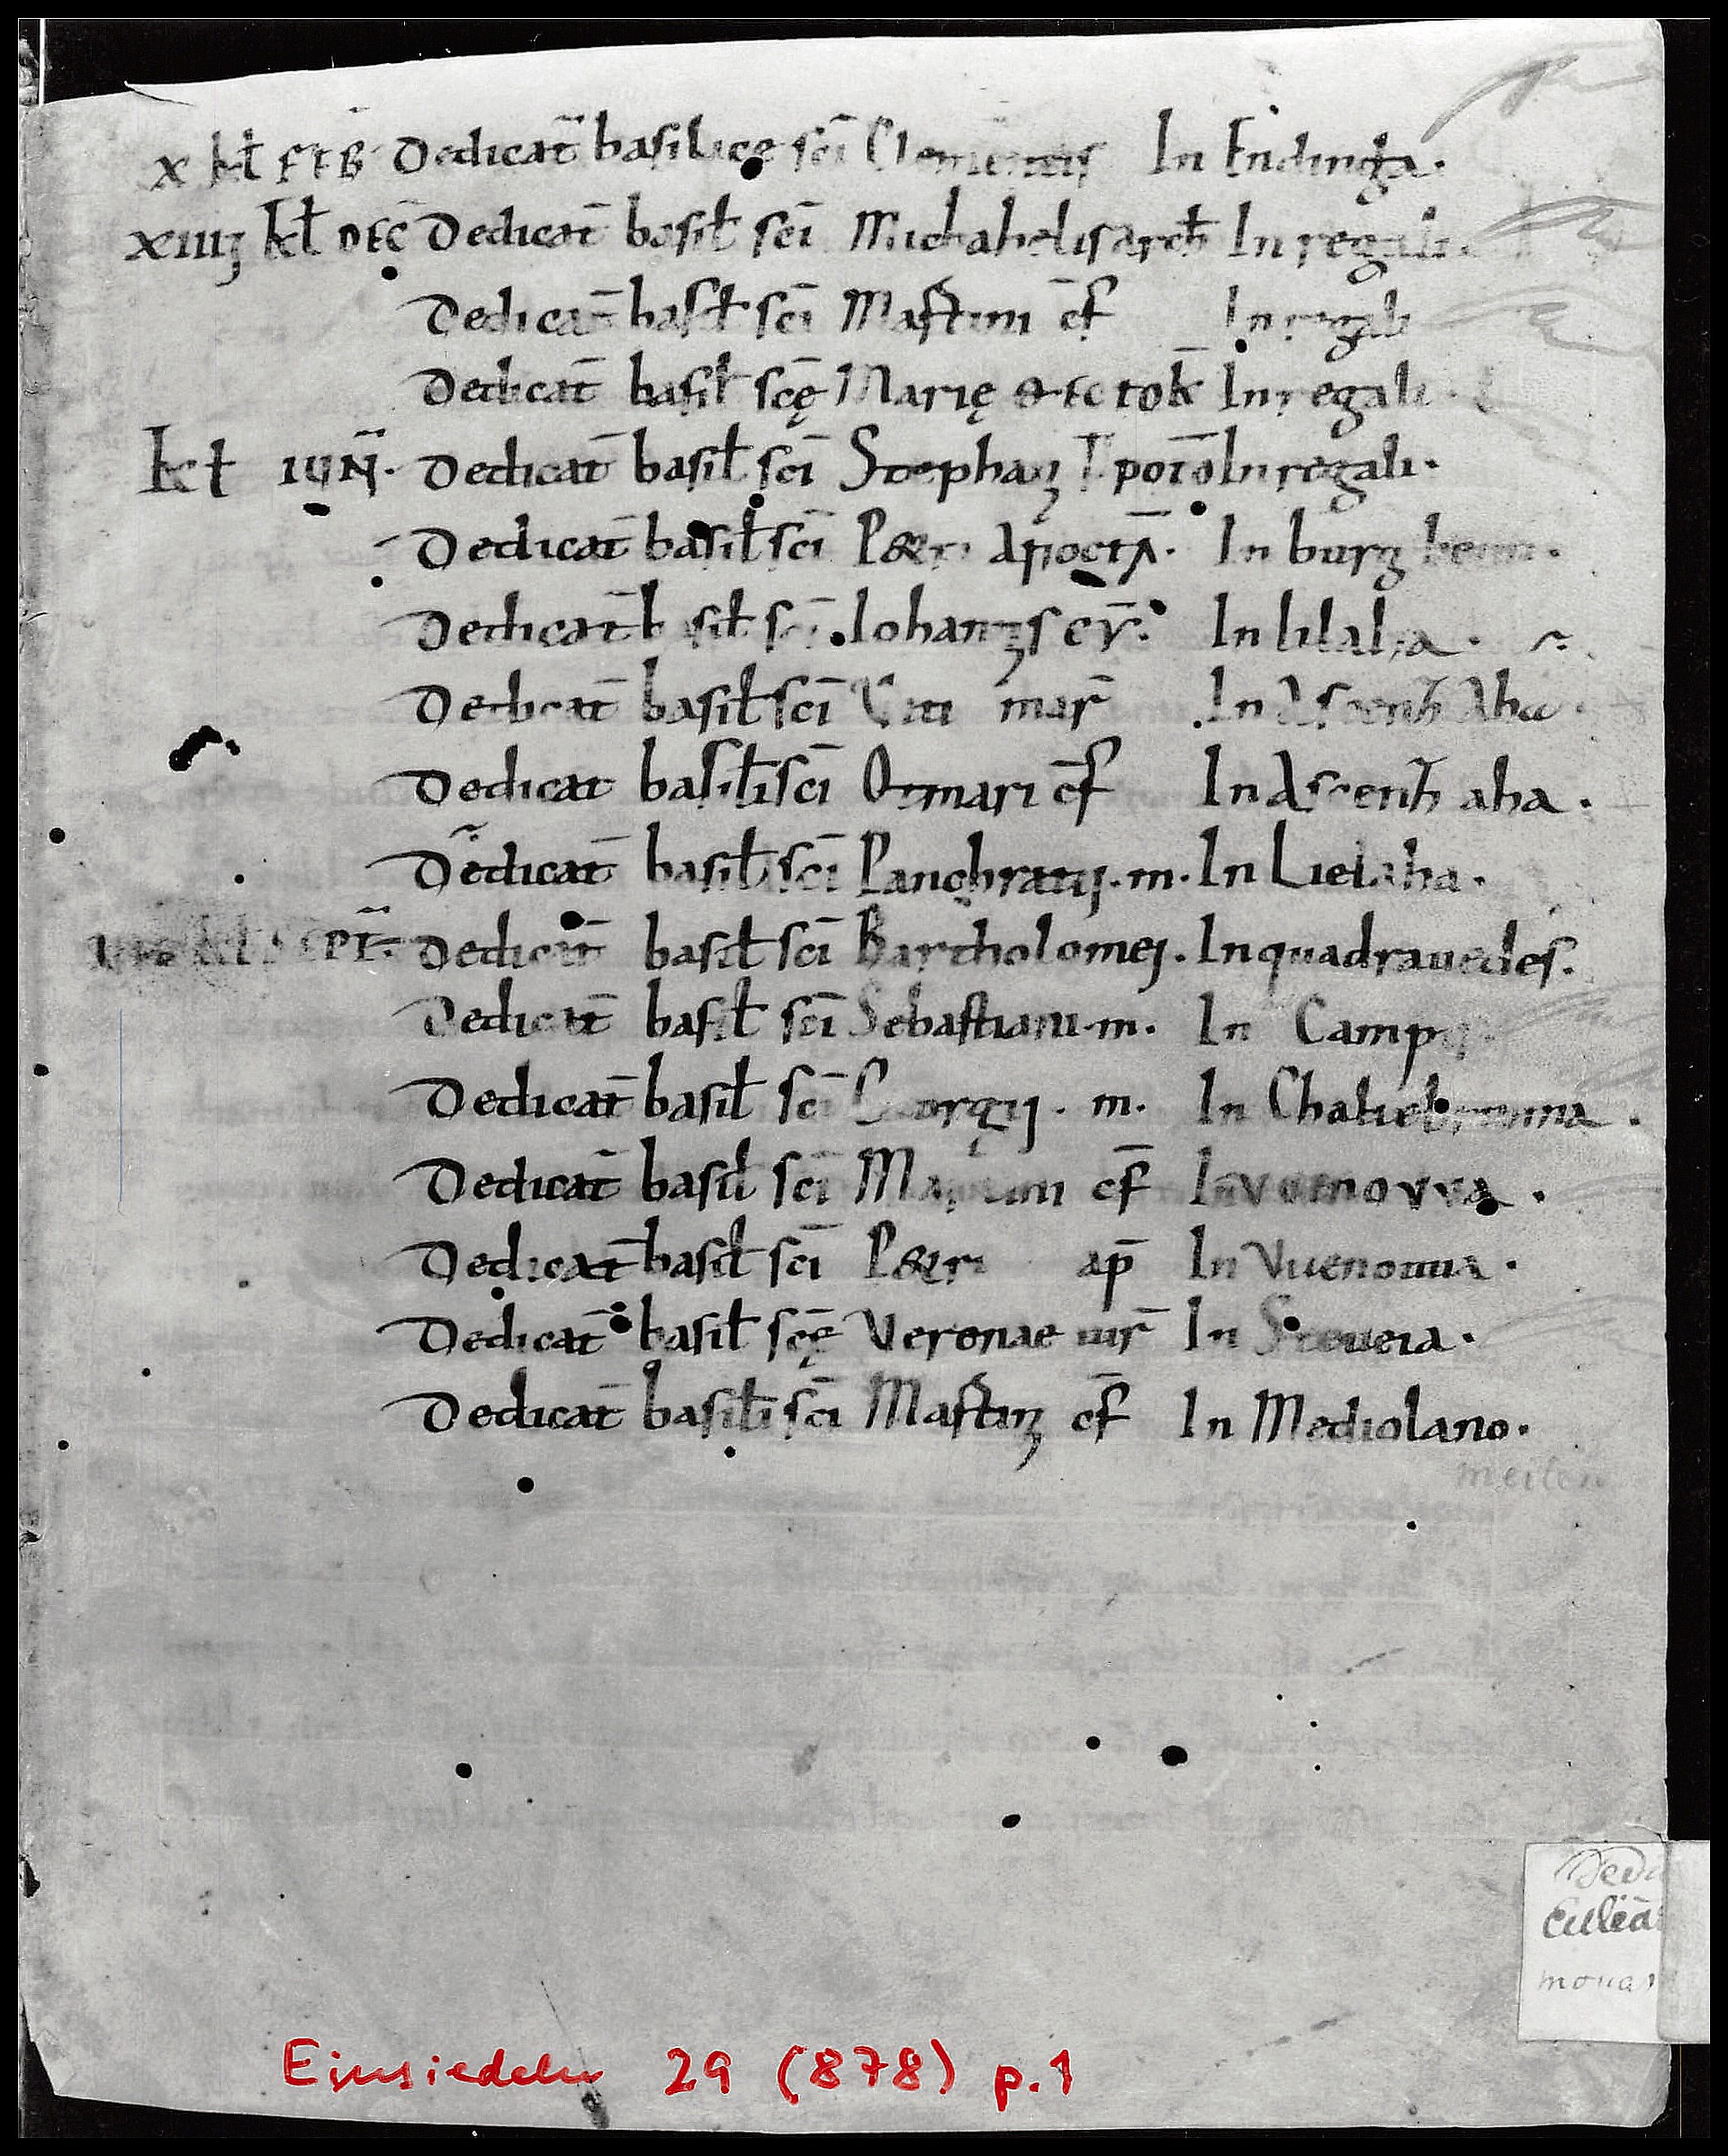 x kł feb̄ Dedicat̄ basilice sc̄i Clementis In Endinga.
xiiij kł dec̄ Dedicat̄ basił sc̄i Michahelis arch̄ In regali.
Dedicat̄ basił sc̄i Martini c̄f In regali
Dedicat̄ basił sc̄ę Marię In regali.
kł iun̄. Dedicat̄ basił sc̄i Stephanj In regali.
Dedicat̄ basił sc̄i Petri In burg
Dedicat̄ basił sc̄i Iohannis ev̄. In
Dedicat̄ basił sc̄i Viti mar̄ In Ascenh̄ Aha.
Dedicat basił sc̄i Otmari c̄f In Ascenh̄ aha.
Dedicat̄ basił sc̄i Panchratij. m. In Lielaha.
kł sept̄. Dedicat̄ basił sc̄i Bartholomej. In quadrauedes.
Dedicat̄ basił sc̄i Sebastiani. m. In Campis.
Dedicat̄ basił sc̄i Georgij. m. In
Dedicat̄ basił sc̄i c̄f
Dedicat̄ basił sc̄i Petri ap̄ In Vuenouua.
Dedicat̄ basił sc̄ę Veronae In Steueia.
Dedicat̄ basił sc̄i Martinj c̄f In Mediolano.
meilen
Einsiedeln 29 (878) p.1